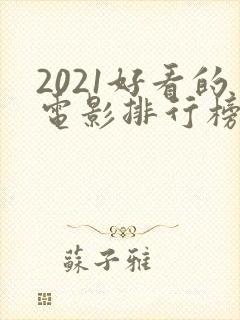 2021好看的
電影排行榜
蘇子雅